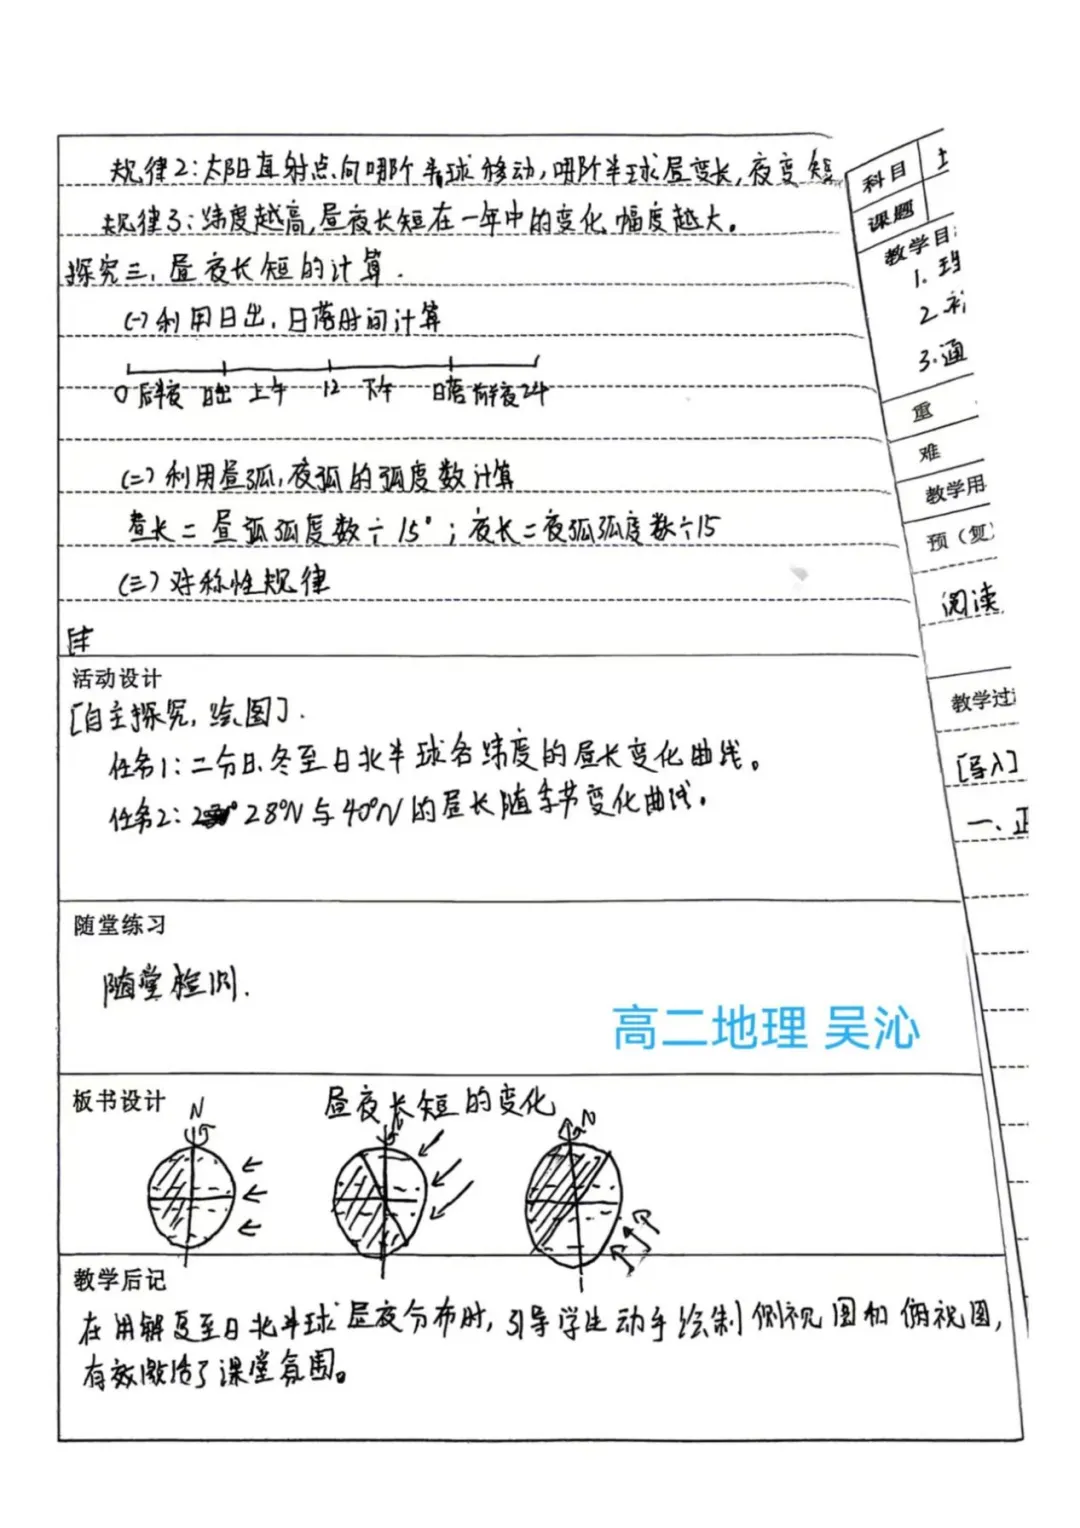 规律2:太阳直射点向哪个半球移动,哪个半球昼变长,夜变短
规律3:纬度越高,昼夜长短在一年中的变化幅度越大。
探究三、昼夜长短的计算.
(一)利用日出、日落时间计算
0 后半夜 日出 上午 12 下午 日落 前半夜 24
(二)利用昼弧,夜弧的弧度数计算
昼长=昼弧弧度数÷15°;夜长=夜弧弧度数÷15
(三)对称性规律
活动设计
[自主探究,绘图].
任务1:二分日、冬至日北半球各纬度的昼长变化曲线。
任务2: 28°N与40°N的昼长随季节变化曲线。
随堂练习
随堂检测.
高二地理 吴沁
板书设计
昼夜长短的变化
N
N
教学后记
在用解夏至日北半球昼夜分布时,引导学生动手绘制侧视图和俯视图,
有效激活了课堂氛围。
科目
课题
教学目
1.
2.
3.通
重
难
教学用
预(复)
阅读
教学过
[导入]
一、正